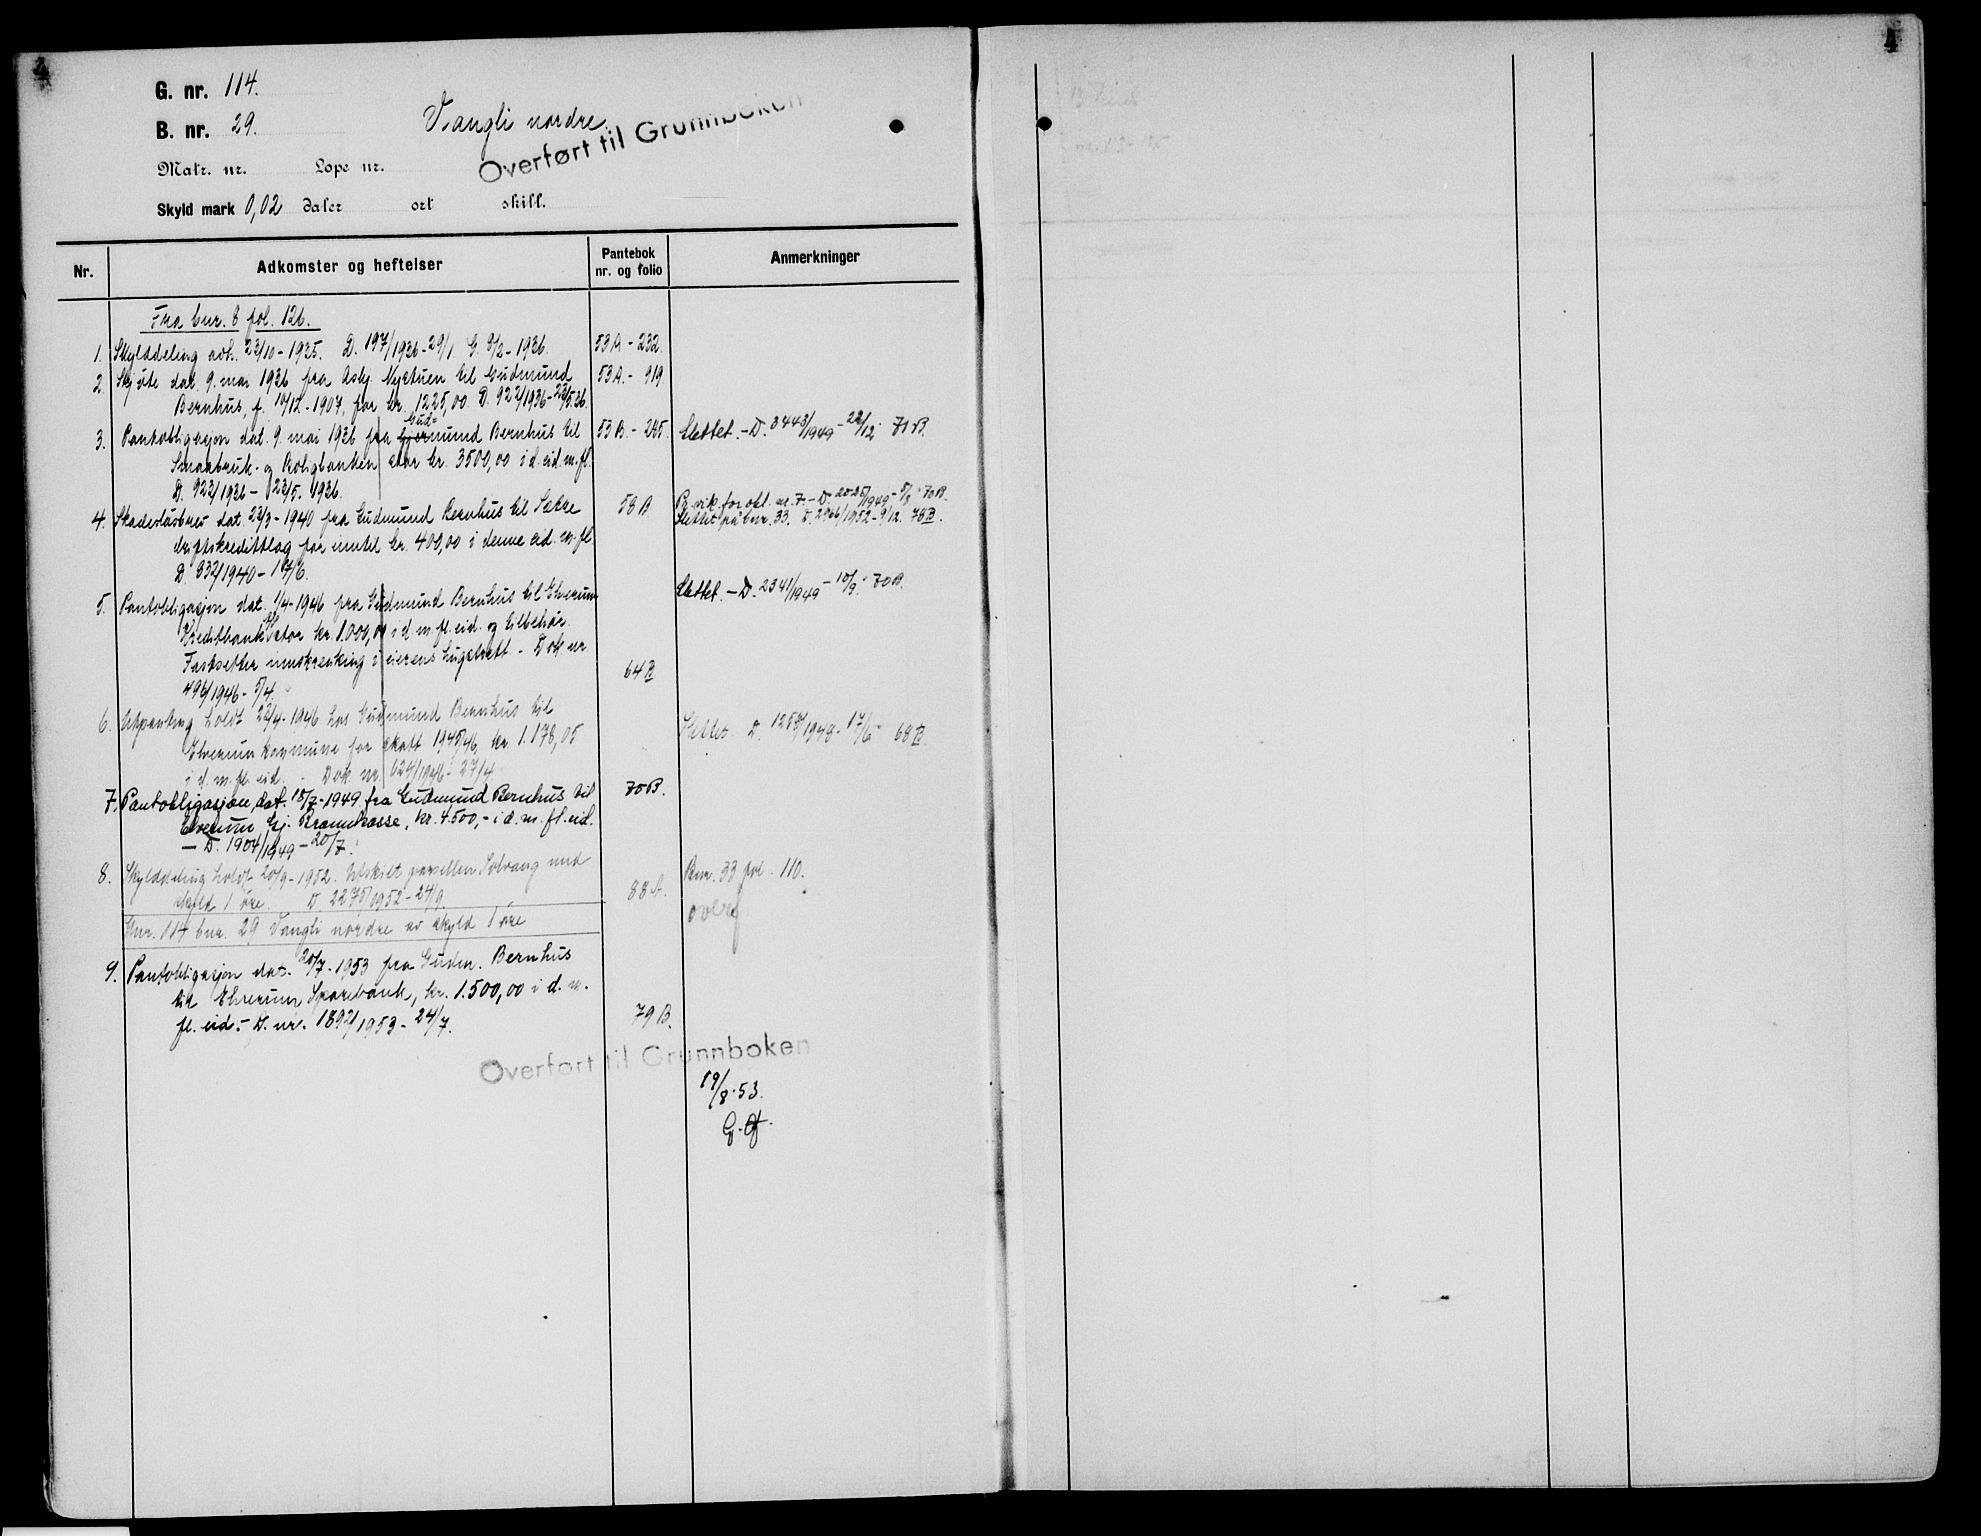 4
4
G. nr. 114.
B. nr. 29.
Vangli nordre.
Overført til Grunnboken
Matr. nr. Lope nr.
Skyld mark 0,02 daler ort skill.
Nr. Adkomster og heftelser Pantebok nr. og folio Anmerkninger
Fra bnr. 8 fol. 126.
1. Skylddeling avh. 23/10-1935. D. 197/1936-29/1. G. 8/2-1936. 53A - 232.
2. Skjöte dat. 9. mai 1936 fra Asbj. Nyetuen til Gudmund 53A. - 919.
Bernhus, f. 10/12-1907, for kr. 1225,00 D. 922/1936-23/5.36.
Gud-
3. Pantobligasjon dat. 9. mai 1936 fra Gjermund Bernhus til 53B. - 245 Slettet. - D. 3443/1949 - 22/12. 71B.
Smaabruk- og Boligbanken stor kr. 3500,00 i d. eid. m. fl.
D. 923/1936 - 23/5. 1936.
4. Skadeslösbrev dat. 23/3-1940 fra Gudmund Bernhus til Sætre 58B Pr. vik. for obl. nr. 7 - D. 2025/1949 - 5/8. 70B.
Slettet på bnr. 33. D. 2906/1952 - 9/12. 78B.
driftskredittlag for inntil kr. 400,00 i denne eid. m. fl.
D. 832/1940 - 17/6.
5. Pantobligasjon dat. 1/4-1946 fra Gudmund Bernhus til Elverum Slettet. - D. 2341/1949 - 10/9. 70B.
Kreditbank stor kr. 1.000,00 i d. m. fl. eid. og tilbehör.
Fastsetter innskrenking i eierens hugstrett. - Dok. nr.
496/1946 - 5/4. 64B
6. Utpanting holdt 23/4-1946 hos Gudmund Bernhus til
Elverum kommune for skatt 1945/46, kr. 1.178,05 Slettet D. 1258/1948 - 17/6 - 68B.
i d. m. fl. eid. - Dok. nr. 624/1946 - 27/4.
7. Pantobligasjon, dat. 15/7-1949 fra Gudmund Bernhus til 70B.
Elverum Gj. Brannkasse, kr. 4.500,- i d. m. fl. eid.
- D. 1904/1949 - 20/7.
8. Skylddeling holdt 20/9-1952. Utskilt parsellen Solvang med Bnr. 33 fol. 110.
skyld 1 öre. D. 2275/1952 - 24/9. 88A. overf
Gnr. 114 bnr. 29 Vangli nordre av skyld 1 öre
9. Pantobligasjon dat. 20/7-1953 fra Gudm. Bernhus
til Elverum Sparebank, kr. 1.500,00 i d. m.
fl. eid. - D. nr. 1892/1953 - 24/7. 79B.
Overført til Grunnboken
19/8.53.